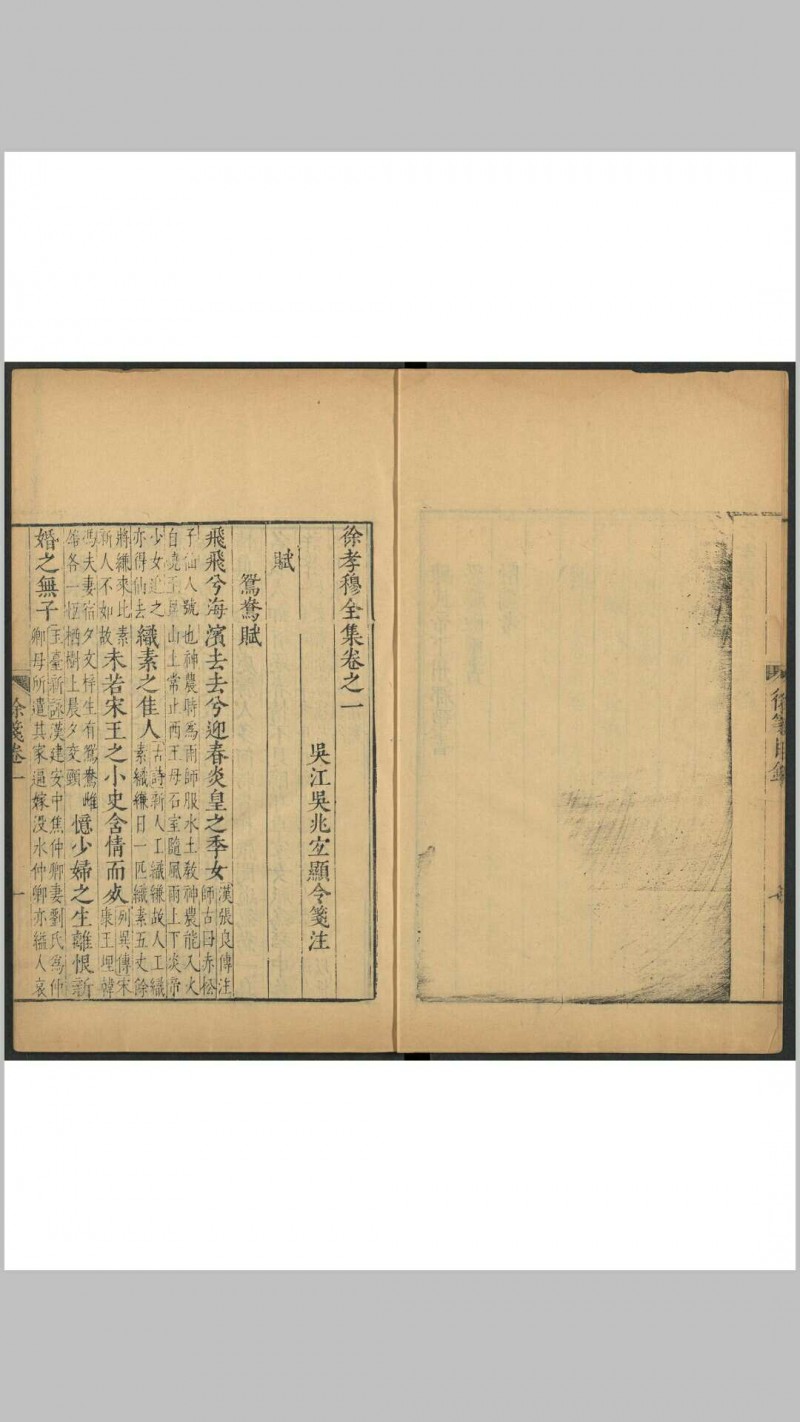 徐孝穆全集卷之一
吳江吳兆宜顯令箋注
賦
鴛鴦賦
飛飛兮海濱去去兮迎春炎皇之季女漢張良傳注師古曰赤松
子仙人號也神農時爲雨師服水土敎神農能入火自燒至崑山上常止西王母石室隨風雨上下炎帝
少女追之亦得仙去織素之佳人古詩新人工織縑故人工織素織縑日一匹織素五丈餘
將縑來比素新人不如故未若宋王之小史含情而死列異傳宋康王埋韓
馮夫妻宿夕文梓生有鴛鴦雌雄各一恆栖樹上晨夕交頸憶少婦之生離恨新
婚之無子玉臺新詠漢建安中焦仲卿妻劉氏爲仲卿母所遣其家逼嫁没水仲卿亦縊人哀
徐箋卷一
一